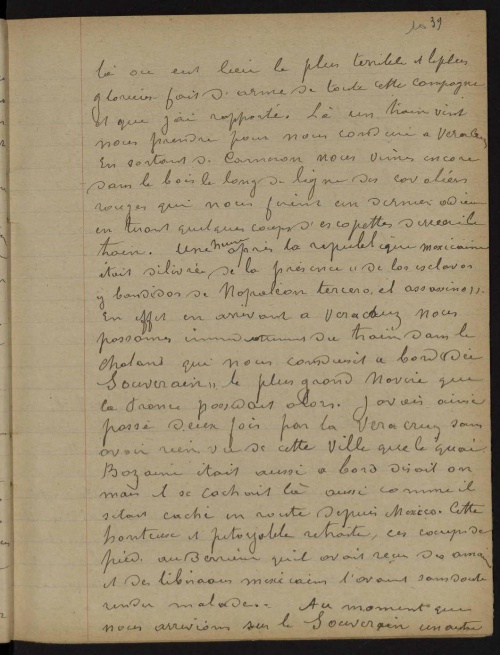 39
là ou eut lieu le plus terrible et le plus
glorieux fait d'arme de toute cette campagne
et que j'ai rapporté. Là un train vint
nous prendre pour nous conduire a Veracruz
En sortant de Cameron nous vîmes encore
dans le bois le long de ligne des cavaliers
rouges qui nous firent un dernier adieu
en tirant quelques coups d'escopettes derrière le
train. Une heure après la republique mexicaine
était délivrée de la présence « de los esclavos
y bandidos de Napoléon tercero, el assassino ».
En effet en arrivant a Veracruz nous
passames du train dans le
chaland qui nous conduisit a bord du
Souverain » le plus grand navire que
la France possedait alors. J'avais ainsi
passé deux fois par la Veracruz sans
avoir rien vu de cette ville que le quai.
Bazaine était aussi a bord disait on
mais il se cachait là aussi comme il
s'etait caché en route depuis Mexico. Cette
honteuse et pitoyable retraite, ces coups de
pied au derrière qu'il avait reçu des
et des mexicains l'avait sans doute
rendu malade. Au moment que
nous arrivions sur le Souverain un autre